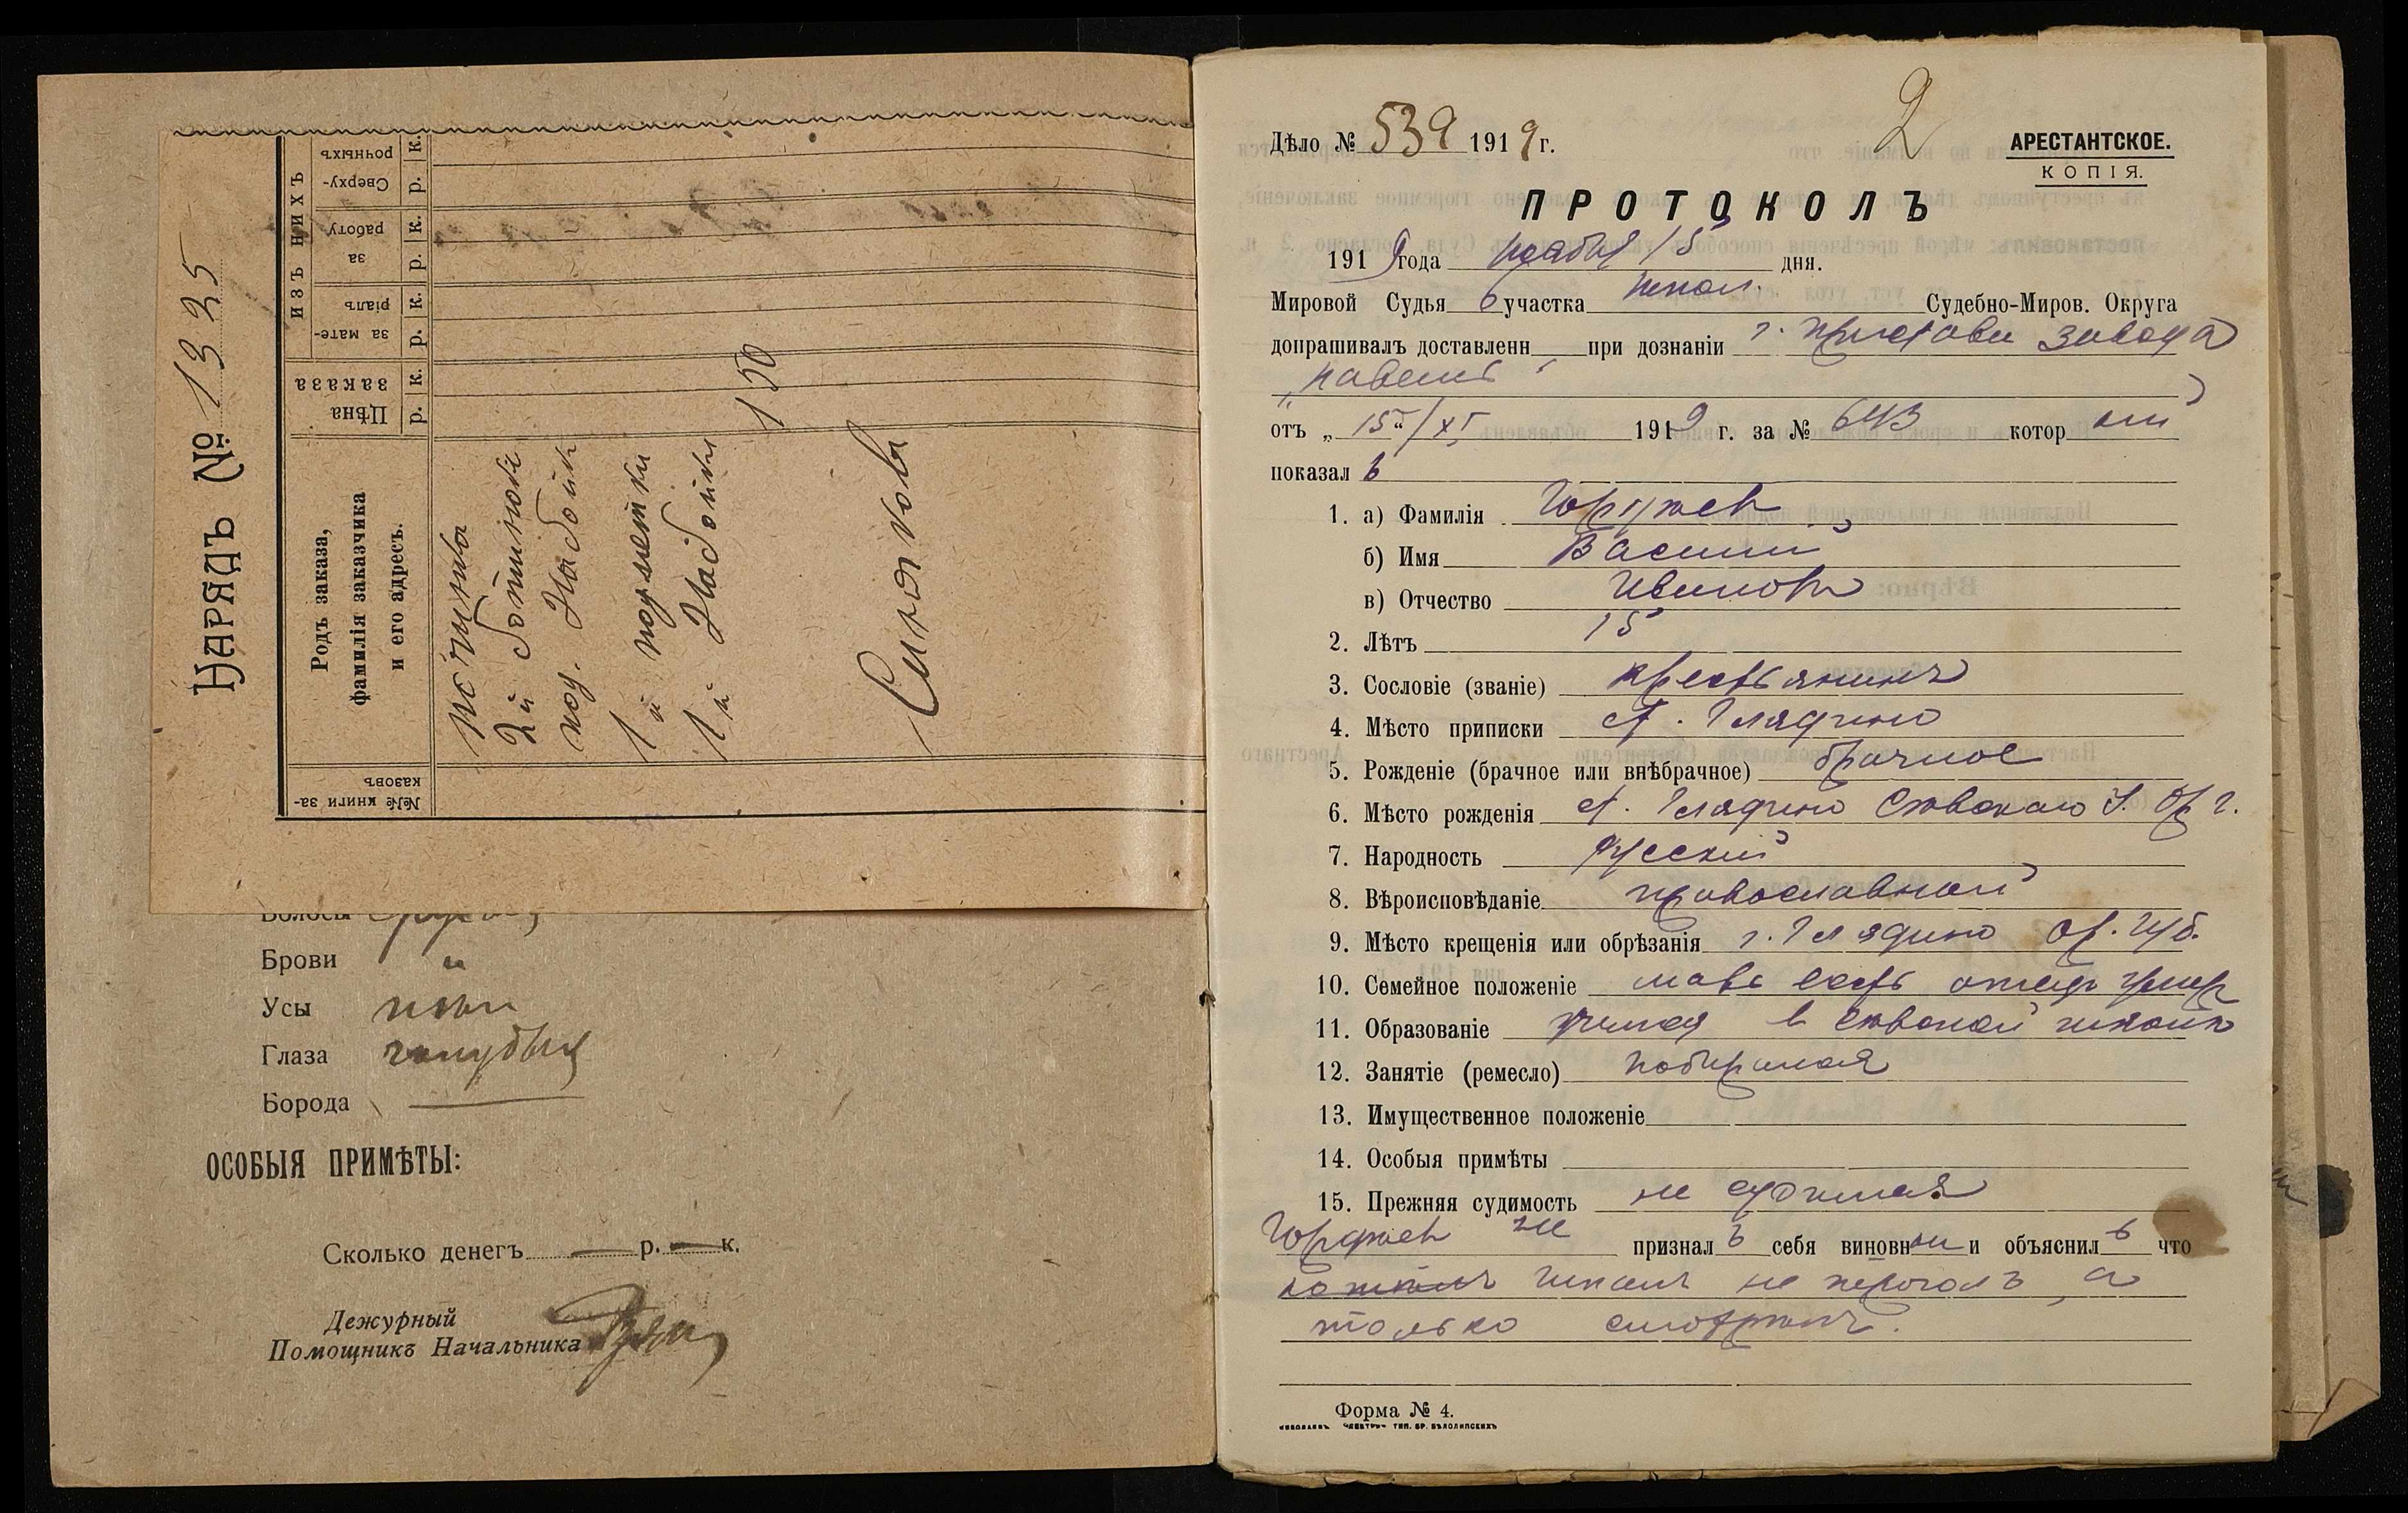 НАРЯДЪ №. 1325
№№ книги за-
казовъ
Родъ заказа,
фамилія заказчика
и его адресъ.
Цѣна
заказа
р. к.
ИЗЪ НИХЪ
за мате-
ріалъ
р. к.
за
работу
р. к.
Сверху-
рочныхъ
р. к.
починка
2й ботинокъ
под. Набойк
1й подметки
1й Набойки 1 50
Волосы русые
Брови "
Усы
Глаза голубые
Борода —
ОСОБЫЯ ПРИМѢТЫ:
Сколько денегъ — р. — к.
Дежурный
Помощникъ Начальника
2
Дѣло № 539 1919 г.
АРЕСТАНТСКОЕ.
КОПІЯ.
ПРОТОКОЛЪ
1919 года ноября 15 дня.
Мировой Судья 6 участка Никол. Судебно-Миров. Округа
допрашивалъ доставленн при дознаніи г. Пристава завода
„Наваль"
отъ „15"/XI 1919 г. за № 643 котор ый
показал ъ
1. а) Фамилія
б) Имя Василий
в) Отчество Иванов
2. Лѣтъ 15
3. Сословіе (званіе) крестьянинъ
4. Мѣсто приписки с. Глядино
5. Рожденіе (брачное или внѣбрачное) брачное
6. Мѣсто рожденія с. Глядино Сквскаго у. Ор г.
7. Народность Русский
8. Вѣроисповѣданіе православной
9. Мѣсто крещенія или обрѣзанія г. Глядино Ор. губ.
10. Семейное положеніе мать есть отець умер
11. Образованіе учился в сквской школѣ
12. Занятіе (ремесло) побирался
13. Имущественное положеніе
14. Особыя примѣты
15. Прежняя судимость не судился
не призналъ себя виновным и объяснилъ что
шпалъ не трогалъ, а
только смотрѣлъ.
Форма № 4.